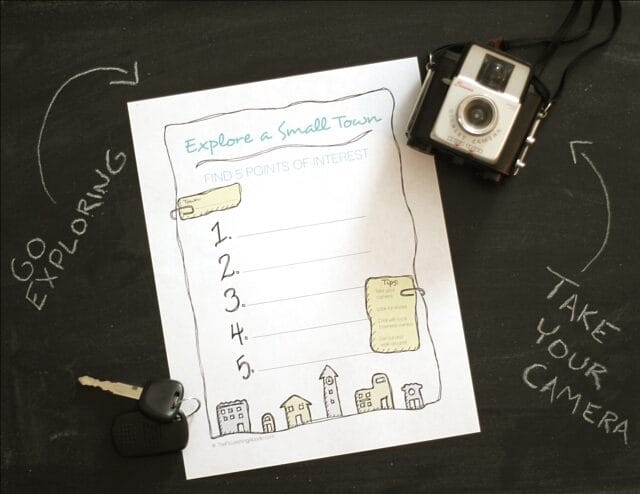 Explore a Small Town
FIND 5 POINTS OF INTEREST
Town:
1.
2.
3.
4.
5.
Tips:
© TheFlourishingAbode.com
GO
EXPLORING
TAKE
YOUR
CAMERA